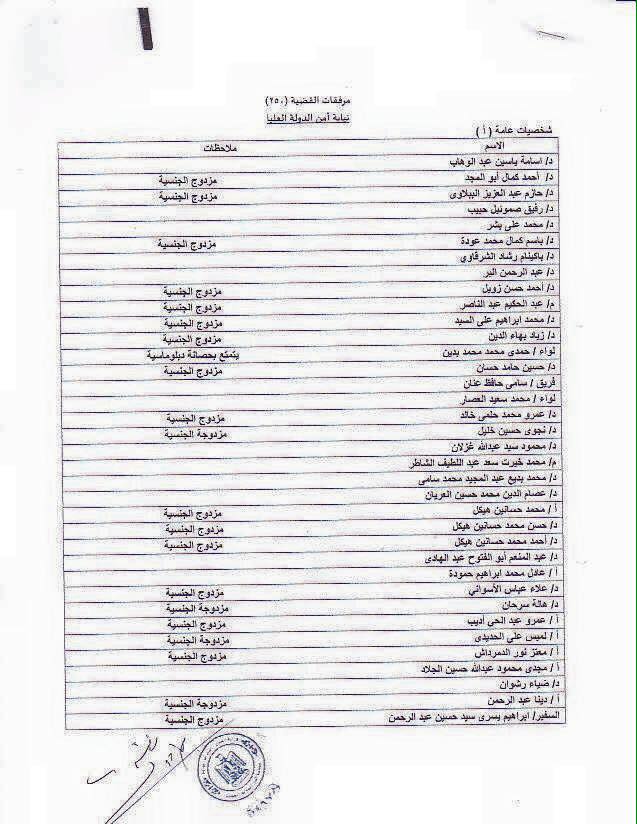 مرفقات القضية (٢٥٠)
نيابة أمن الدولة العليا
شخصيات عامة (أ)
الاسم ملاحظات
د/ اسامة ياسين عبد الوهاب
د/ أحمد كمال أبو المجد مزدوج الجنسية
د/ حازم عبد العزيز الببلاوى مزدوج الجنسية
د/ رفيق صموئيل حبيب
د/ محمد على بشر
د/ باسم كمال محمد عودة مزدوج الجنسية
د/ باكينام رشاد الشرقاوي
د/ عبد الرحمن البر
د/ أحمد حسن زويل مزدوج الجنسية
م/ عبد الحكيم عبد الناصر مزدوج الجنسية
د/ محمد ابراهيم على السيد مزدوج الجنسية
د/ زياد بهاء الدين مزدوج الجنسية
لواء / حمدى محمد محمد بدين يتمتع بحصانة دبلوماسية
د/ حسين حامد حسان مزدوج الجنسية
فريق / سامى حافظ عنان
لواء / محمد سعيد العصار
د/ عمرو محمد حلمى خالد مزدوج الجنسية
د/ نجوى حسين خليل مزدوجة الجنسية
د/ محمود سيد عبدالله غزلان
م/ محمد خيرت سعد عبد اللطيف الشاطر
د/ محمد بديع عبد المجيد محمد سامى
د/ عصام الدين محمد حسين العريان
أ / محمد حسانين هيكل مزدوج الجنسية
د/ حسن محمد حسانين هيكل مزدوج الجنسية
د/ أحمد محمد حسانين هيكل مزدوج الجنسية
د/ عبد المنعم أبو الفتوح عبد الهادى
أ / عادل محمد ابراهيم حمودة
د/ علاء عباس الأسواني مزدوج الجنسية
د/ هالة سرحان مزدوجة الجنسية
أ / عمرو عبد الحي أديب مزدوج الجنسية
أ / لميس على الحديدى مزدوجة الجنسية
أ / معتز نور الدمرداش مزدوج الجنسية
أ / مجدى محمود عبدالله حسين الجلاد
د/ ضياء رشوان
أ / دينا عبد الرحمن مزدوجة الجنسية
السفير/ ابراهيم يسرى سيد حسين عبد الرحمن مزدوج الجنسية